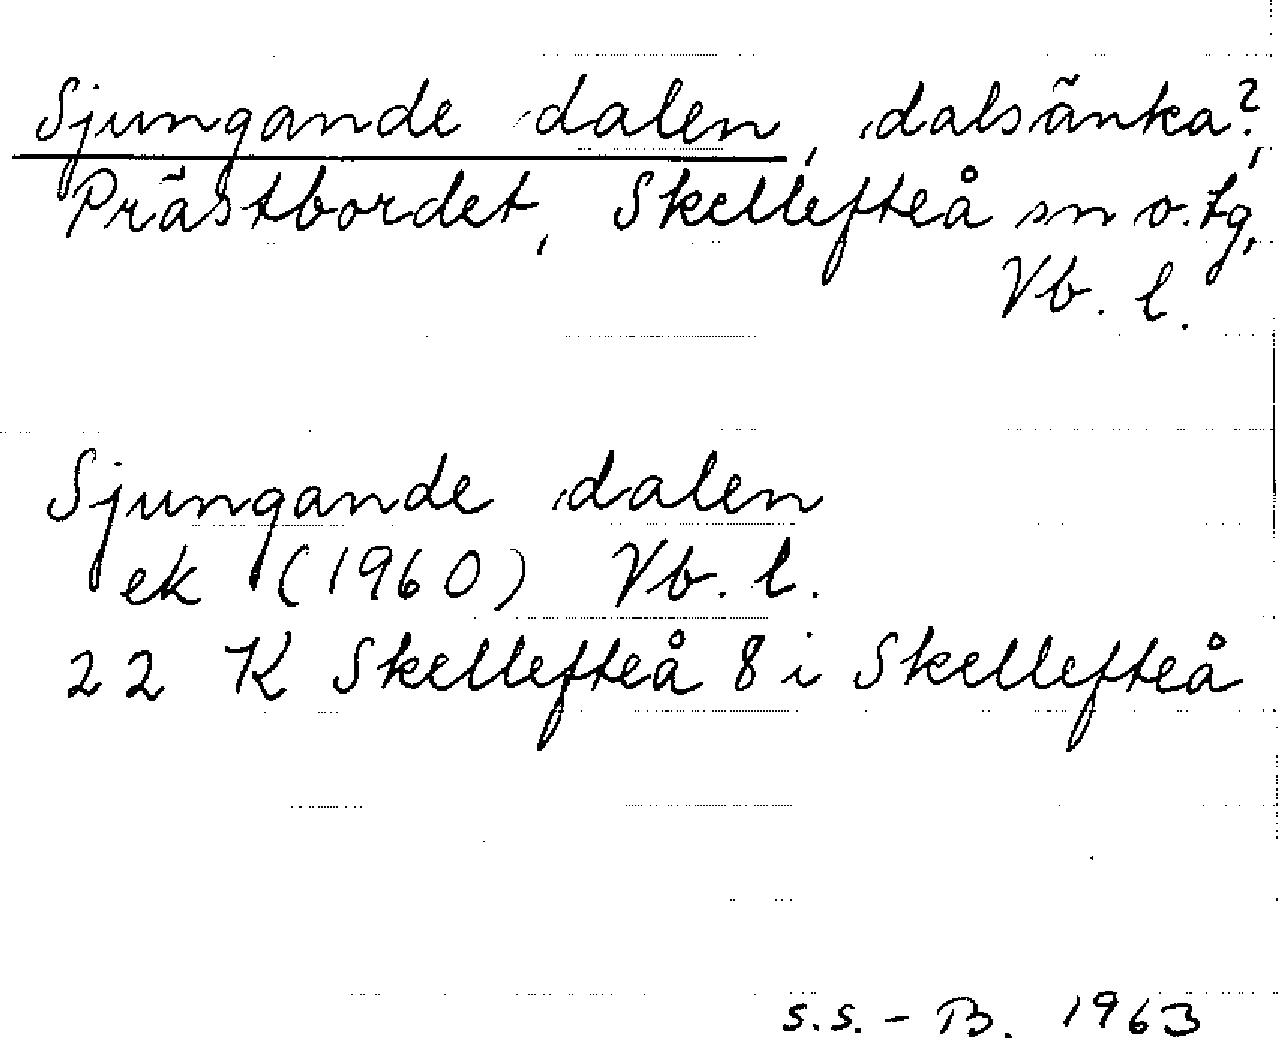 Sjungande dalen, dalsänka?,
Prästbordet, Skellefteå sn o. tg,
Vb. l.
Sjungande dalen
ek (1960) Vb. l.
22 K Skellefteå 8 i Skellefteå
S.S.-B. 1963